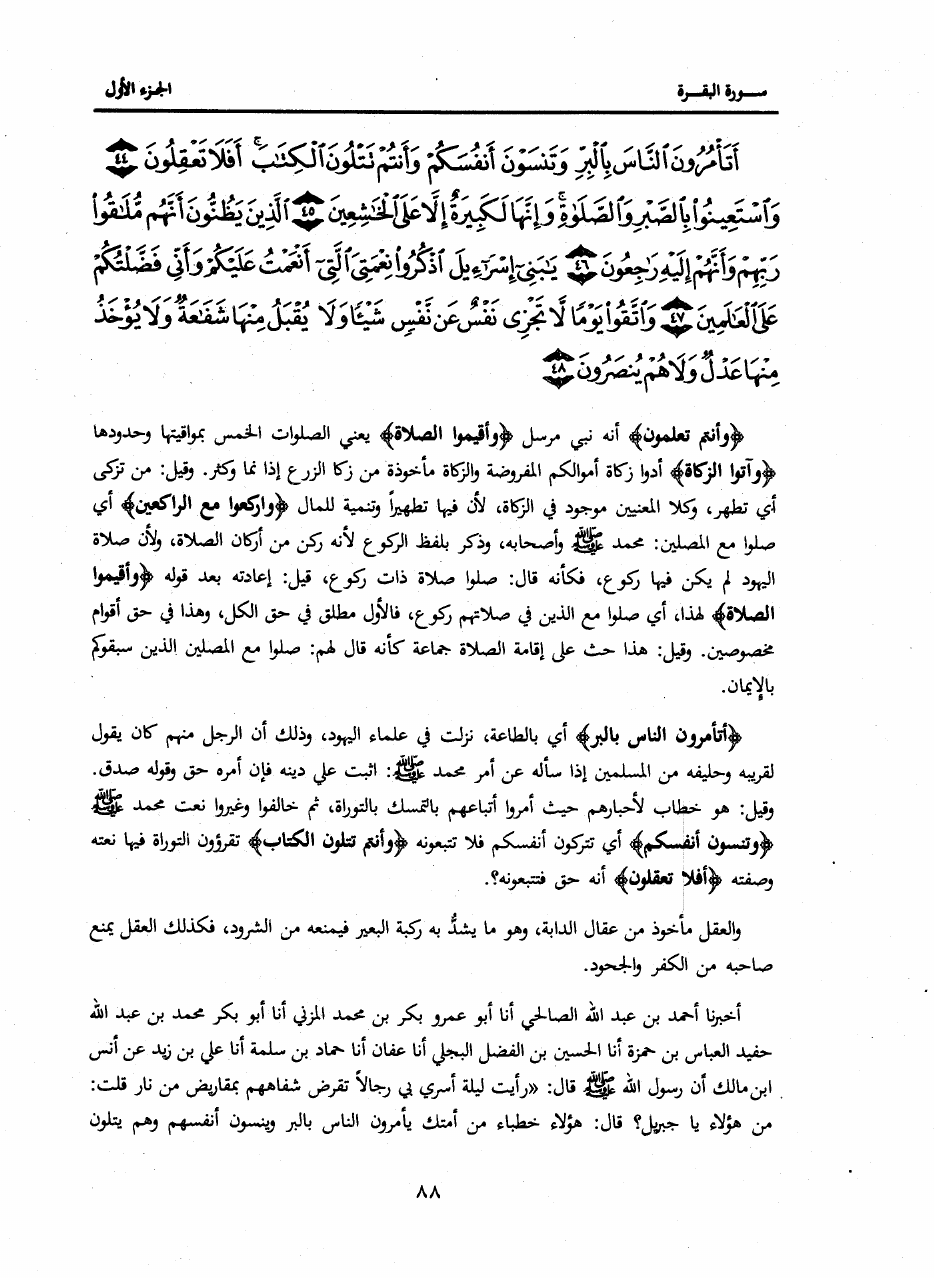 سـورة البقـرة
الجزء الأول
أَتَأْمُرُونَ ٱلنَّاسَ بِٱلْبِرِّ وَتَنسَوْنَ أَنفُسَكُمْ وَأَنتُمْ تَتْلُونَ ٱلْكِتَٰبَ ۚ أَفَلَا تَعْقِلُونَ ٤٤
وَٱسْتَعِينُوا۟ بِٱلصَّبْرِ وَٱلصَّلَوٰةِ ۚ وَإِنَّهَا لَكَبِيرَةٌ إِلَّا عَلَى ٱلْخَٰشِعِينَ ٤٥ ٱلَّذِينَ يَظُنُّونَ أَنَّهُم مُّلَٰقُوا۟
رَبِّهِمْ وَأَنَّهُمْ إِلَيْهِ رَٰجِعُونَ ٤٦ يَٰبَنِىٓ إِسْرَٰٓءِيلَ ٱذْكُرُوا۟ نِعْمَتِىَ ٱلَّتِىٓ أَنْعَمْتُ عَلَيْكُمْ وَأَنِّى فَضَّلْتُكُمْ
عَلَى ٱلْعَٰلَمِينَ ٤٧ وَٱتَّقُوا۟ يَوْمًا لَّا تَجْزِى نَفْسٌ عَن نَّفْسٍ شَيْـًٔا وَلَا يُقْبَلُ مِنْهَا شَفَٰعَةٌ وَلَا يُؤْخَذُ
مِنْهَا عَدْلٌ وَلَا هُمْ يُنصَرُونَ ٤٨
﴿وأنتم تعلمون﴾ أنه نبي مرسل ﴿وأقيموا الصلاة﴾ يعني الصلوات الخمس بمواقيتها وحدودها
﴿وآتوا الزكاة﴾ أدوا زكاة أموالكم المفروضة والزكاة مأخوذة من زكا الزرع إذا نما وكثر. وقيل: من تزكى
أي تطهر، وكلا المعنيين موجود في الزكاة، لأن فيها تطهيراً وتنمية للمال ﴿واركعوا مع الراكعين﴾ أي
صلوا مع المصلين: محمد ﷺ وأصحابه، وذكر بلفظ الركوع لأنه ركن من أركان الصلاة، ولأن صلاة
اليهود لم يكن فيها ركوع، فكأنه قال: صلوا صلاة ذات ركوع، قيل: إعادته بعد قوله ﴿وأقيموا
الصلاة﴾ لهذا، أي صلوا مع الذين في صلاتهم ركوع، فالأول مطلق في حق الكل، وهذا في حق أقوام
مخصوصين. وقيل: هذا حث على إقامة الصلاة جماعة كأنه قال لهم: صلوا مع المصلين الذين سبقوكم
بالإيمان.
﴿أتأمرون الناس بالبر﴾ أي بالطاعة، نزلت في علماء اليهود، وذلك أن الرجل منهم كان يقول
لقريبه وحليفه من المسلمين إذا سأله عن أمر محمد ﷺ: اثبت على دينه فإن أمره حق وقوله صدق.
وقيل: هو خطاب لأحبارهم حيث أمروا أتباعهم بالتمسك بالتوراة، ثم خالفوا وغيروا نعت محمد ﷺ
﴿وتنسون أنفسكم﴾ أي تتركون أنفسكم فلا تتبعونه ﴿وأنتم تتلون الكتاب﴾ تقرؤون التوراة فيها نعته
وصفته ﴿أفلا تعقلون﴾ أنه حق فتتبعونه؟.
والعقل مأخوذ من عقال الدابة، وهو ما يشدُّ به ركبة البعير فيمنعه من الشرود، فكذلك العقل يمنع
صاحبه من الكفر والجحود.
أخبرنا أحمد بن عبد الله الصالحي أنا أبو عمرو بكر بن محمد المزني أنا أبو بكر محمد بن عبد الله
حفيد العباس بن حمزة أنا الحسين بن الفضل البجلي أنا عفان أنا حماد بن سلمة أنا علي بن زيد عن أنس
ابن مالك أن رسول الله ﷺ قال: «رأيت ليلة أسري بي رجالاً تقرض شفاههم بمقاريض من نار قلت:
من هؤلاء يا جبريل؟ قال: هؤلاء خطباء من أمتك يأمرون الناس بالبر وينسون أنفسهم وهم يتلون
٨٨